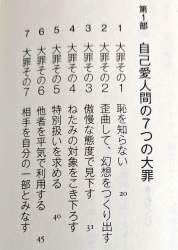 第1部 自己愛人間の7つの大罪
1 大罪その1 恥を知らない 20
2 大罪その2 歪曲して、幻想をつくり出す
3 大罪その3 傲慢な態度で見下す
4 大罪その4 ねたみの対象をこき下ろす 31
5 大罪その5 特別扱いを求める 40
6 大罪その6 他者を平気で利用する 45
7 大罪その7 相手を自分の一部とみなす